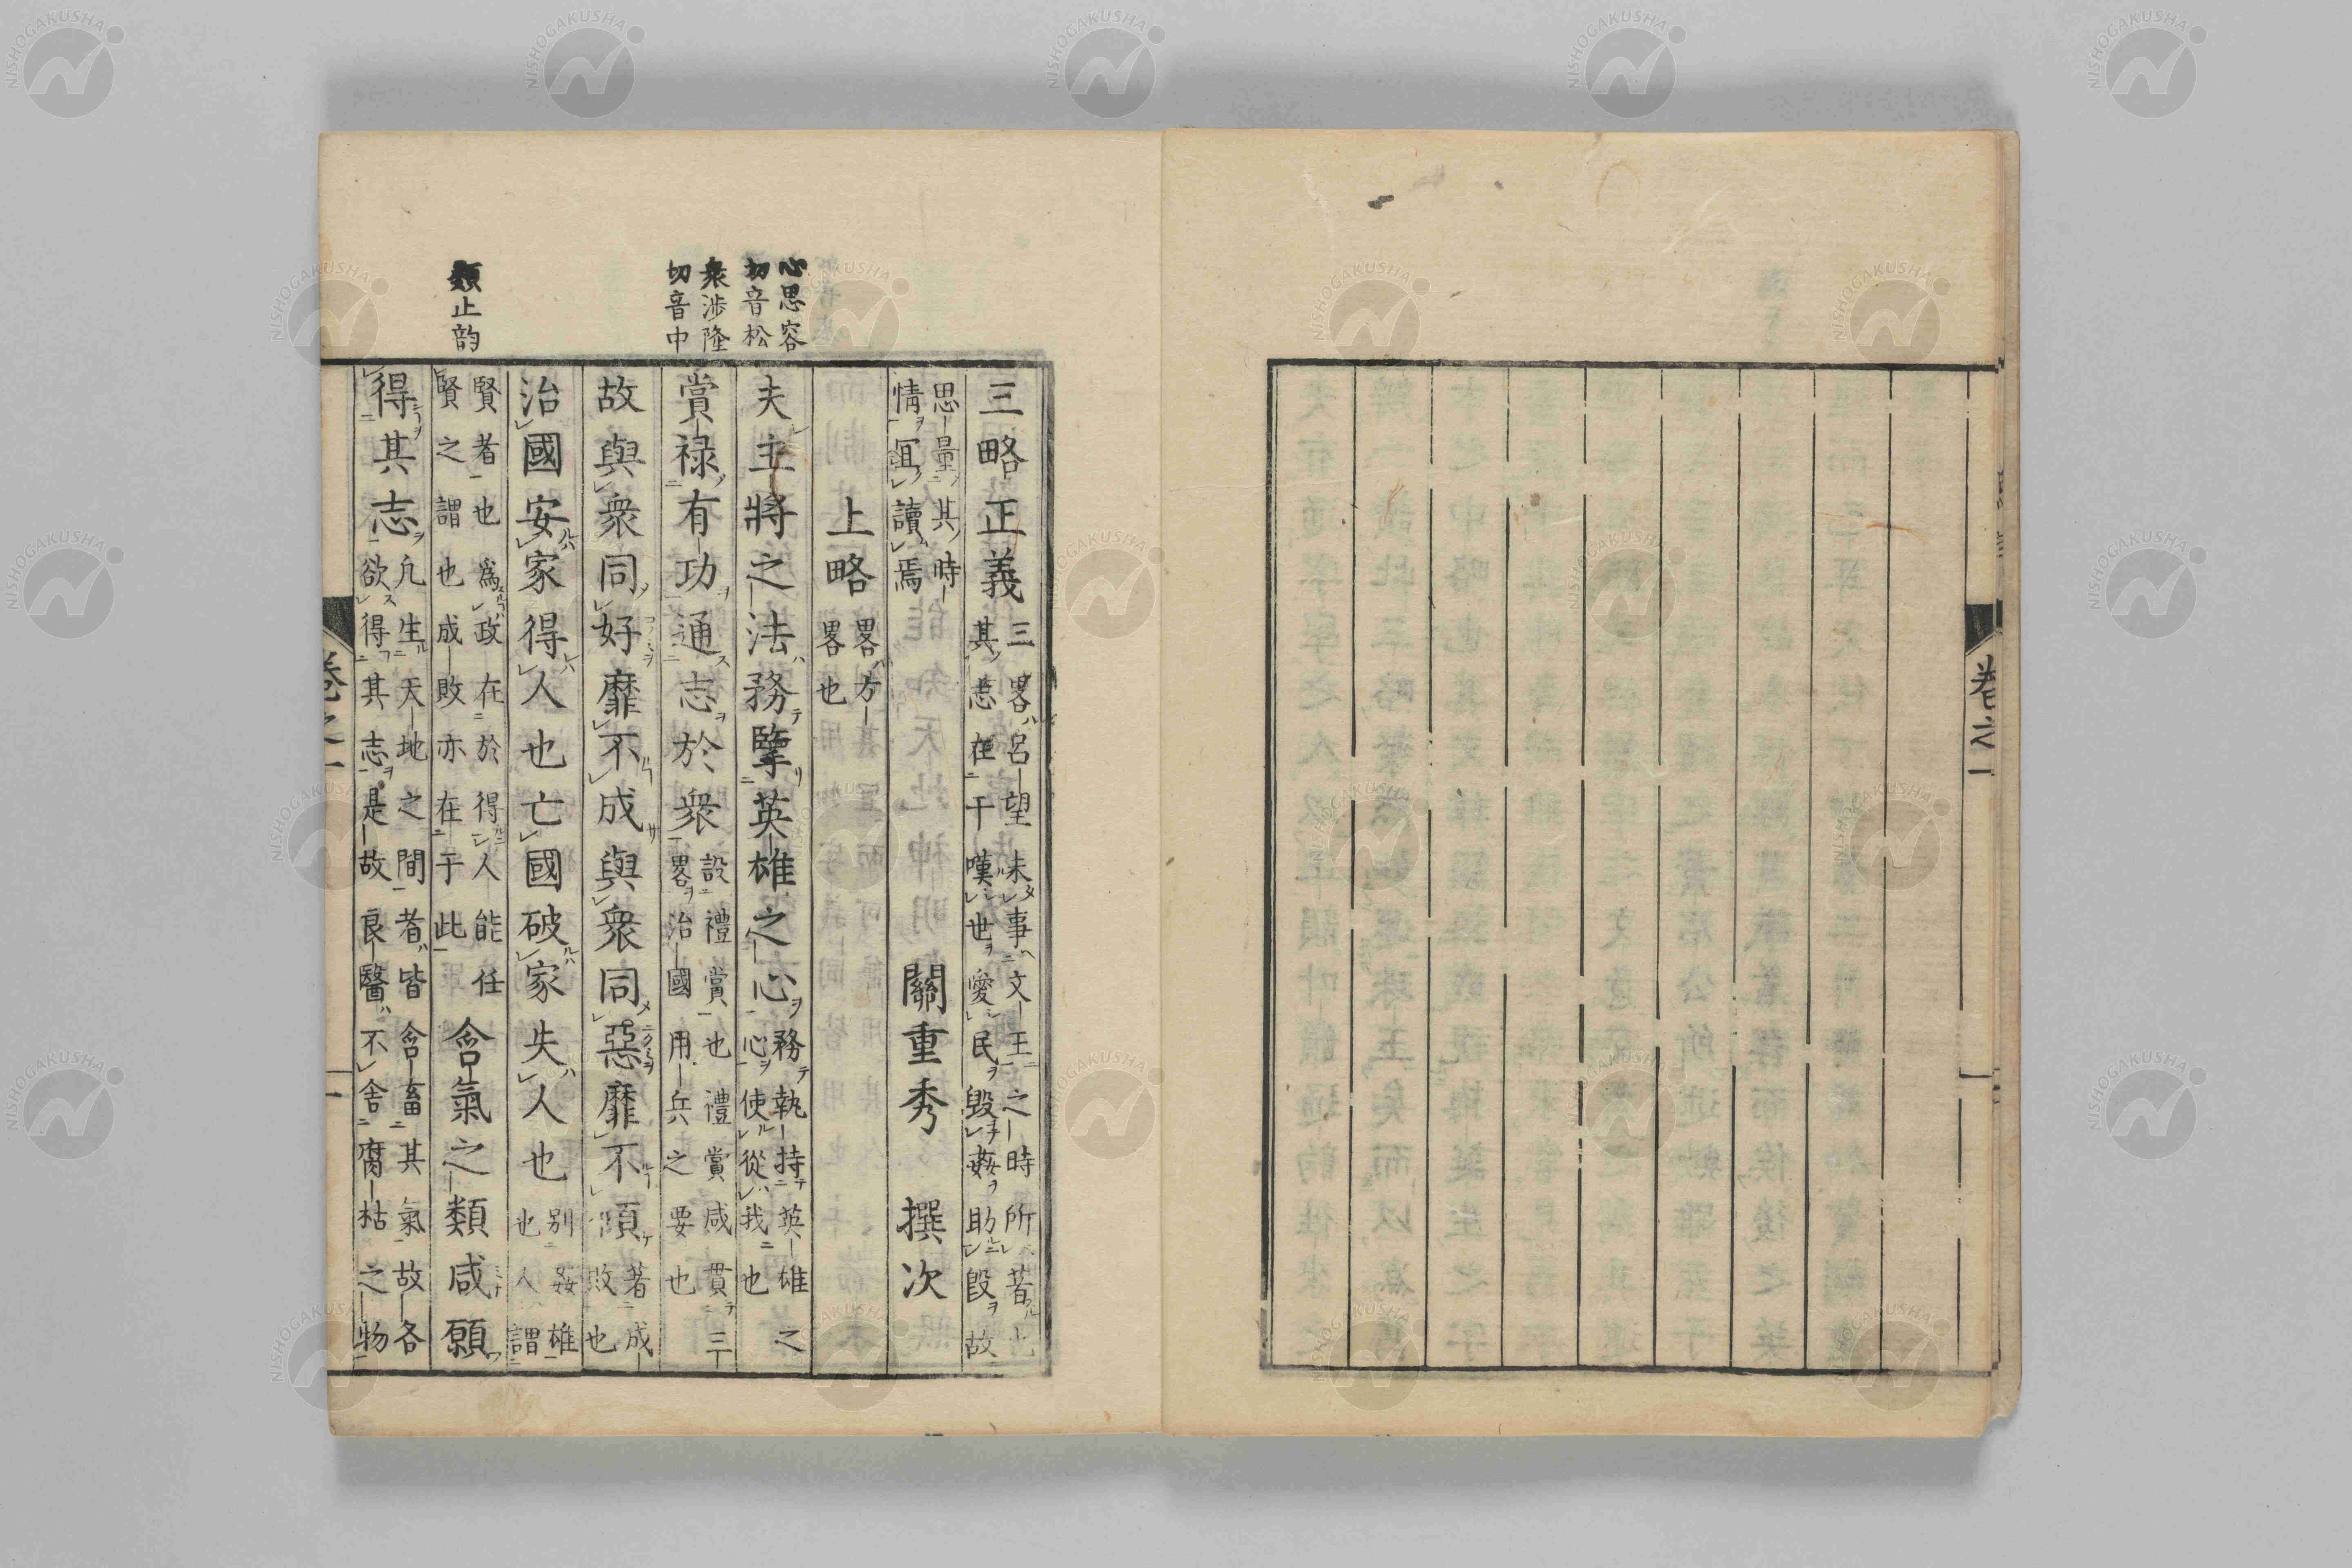 卷之一
三略正義 三畧呂望未事文王之時所著也
其志在于嘆世愛民毀姦助毀故
思量其時
情冝讀焉
關重秀 撰次
上略 畧方
畧也
心思容
切音松
夫主將之法務擥英雄之心 務執持英雄之
心使從我也
衆渉隆
切音中
賞禄有功通志於衆 設禮賞也禮賞咸貫三
畧治國用兵之要也
故與衆同好靡不成與衆同惡靡不傾 著成
敗也
治國安家得人也亡國破家失人也 別姦雄
也人謂
賢者也為政在於得人能任
賢之謂也成敗亦在于此
類止韵
含氣之類咸願
得其志 凢生天地之間者皆含畜其氣故各
欲得其志是故良醫不舍腐枯之物
卷之一
一